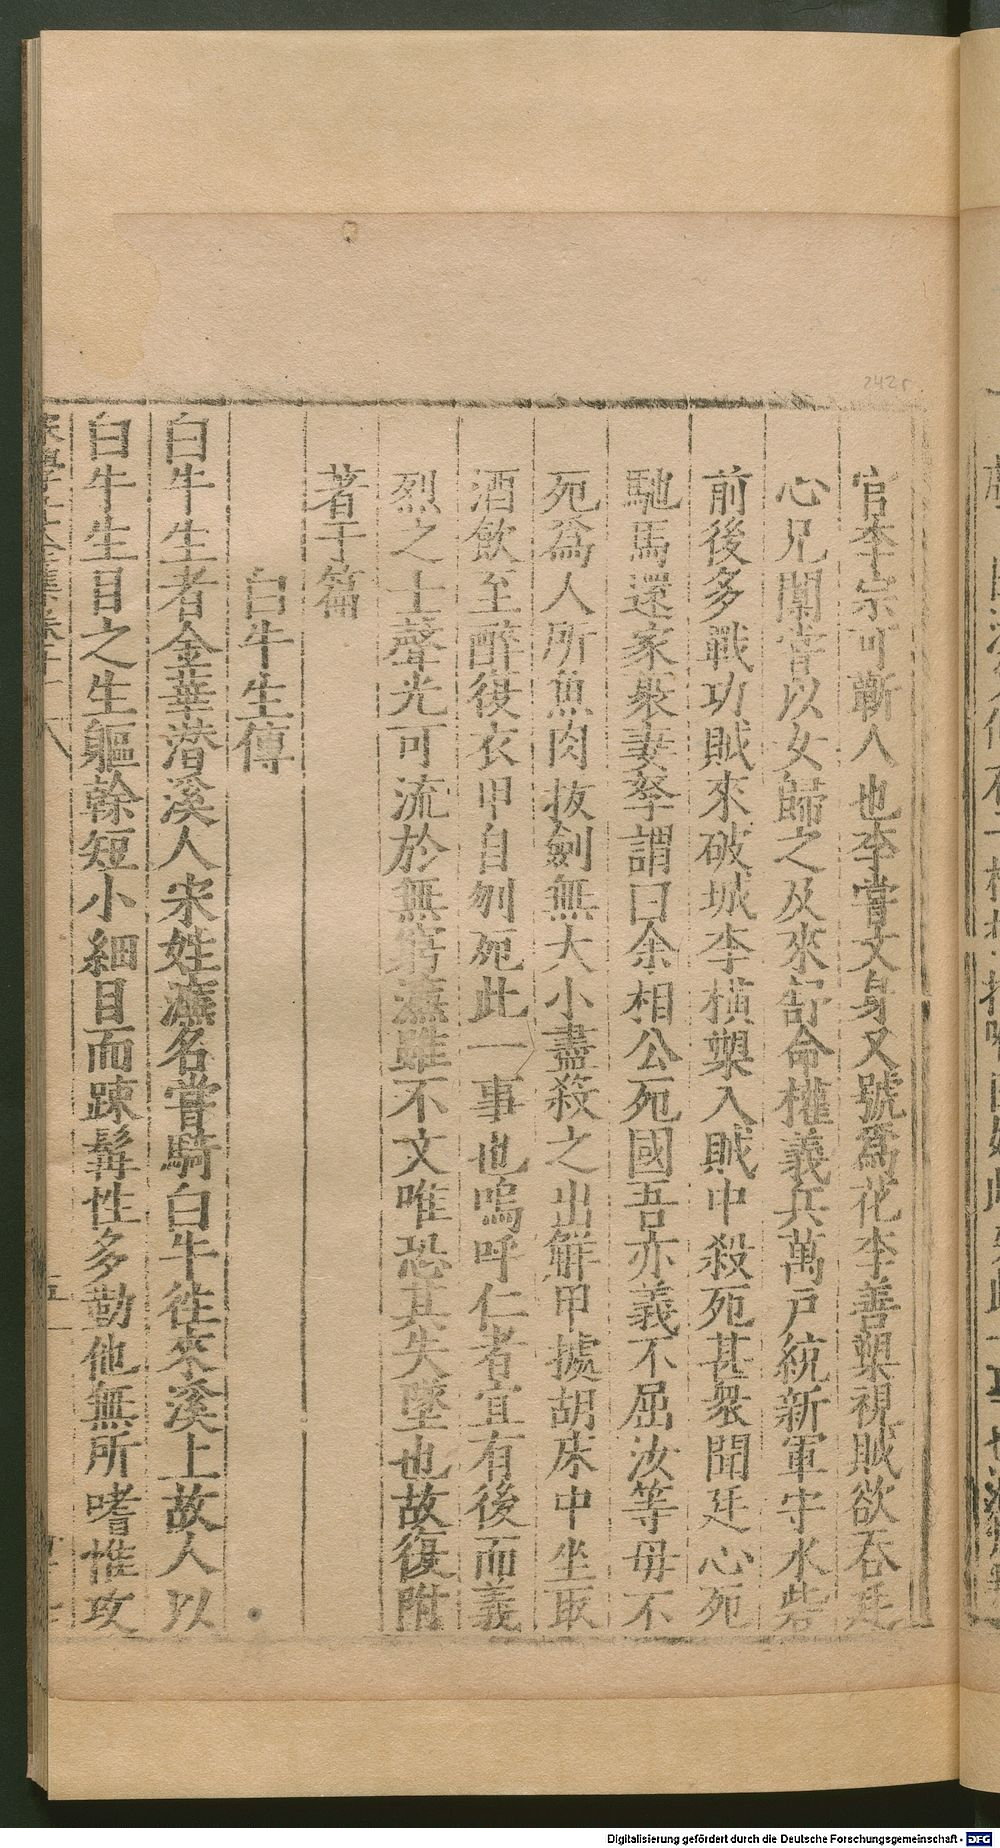 官李宗可蘄人也李嘗文身又號爲花李善槊視賊欲吞廷
心兄闈嘗以女歸之及來舒命權義兵萬戸統新軍守水砦
前後多戰功賊來破城李横槊入賊中殺死甚衆聞廷心死
馳馬還家聚妻孥謂曰余相公死國吾亦義不屈汝等毋不
死爲人所魚肉拔劍無大小盡殺之出解甲據胡床中坐取
酒飲至醉復衣甲自刎死此一事也嗚呼仁者宜有後而義
烈之士聲光可流於無窮濂雖不文唯恐其失墜也故復附
著于篇
白牛生傳
白牛生者金華潛溪人宋姓濂名嘗騎白牛徃來溪上故人以
白牛生目之生軀幹短小細目而踈髯性多勤他無所嗜惟攻
242r
Digitalisierung gefördert durch die Deutsche Forschungsgemeinschaft - DFG